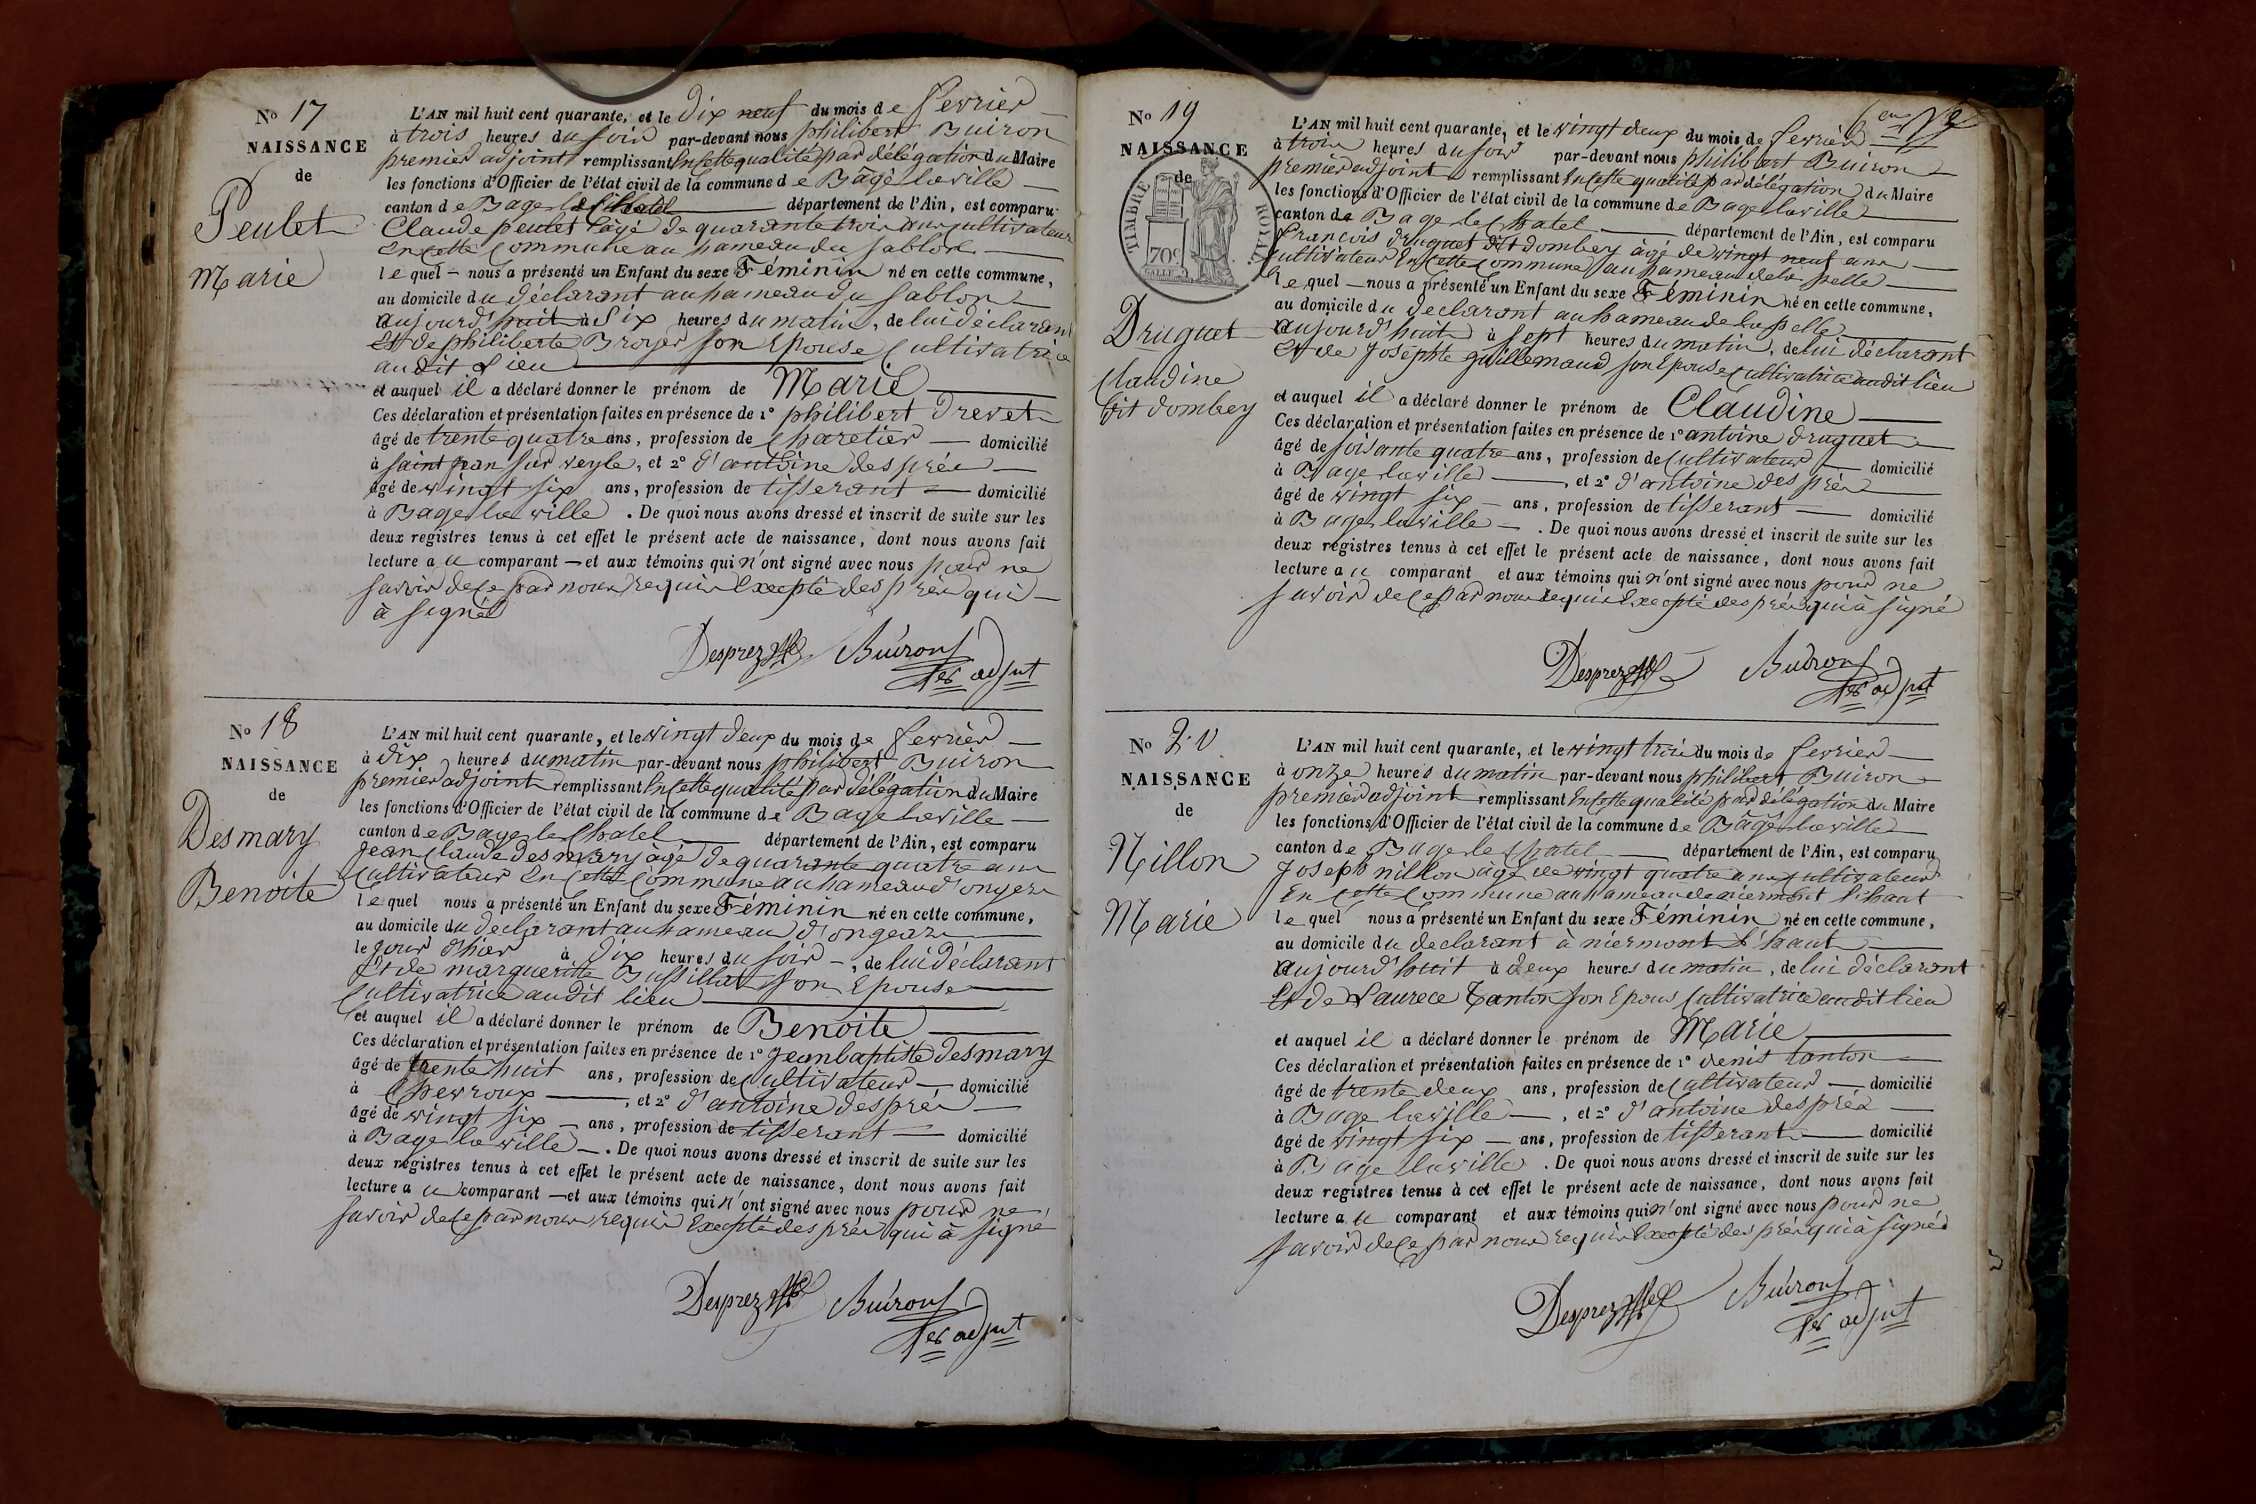 No 17
NAISSANCE
de
Peulet
Marie
L'AN mil huit cent quarante, et le Dix neuf du mois de fevrier
à trois heures du soir par-devant nous philibert Buiron
premier adjoint remplissant en cette qualité par délégation du Maire
les fonctions d'Officier de l'état civil de la commune de Bâgé la ville
canton de Bagé le Chatel département de l'Ain, est comparu
Claude peulet âgé de quarante trois ans cultivateur
en cette commune au hameau du sablon
lequel nous a présenté un Enfant du sexe Féminin né en cette commune,
au domicile du déclarant au hameau du sablon
aujourd'huit à six heures du matin, de lui déclarant
Et de philiberte Broyer son Epouse Cultivatrice
au dit Lieu
et auquel il a déclaré donner le prénom de Marie
Ces déclaration et présentation faites en présence de 1° philibert Drevet
âgé de trente quatre ans, profession de Charetier domicilié
à saint jean sur veyle, et 2° d'antoine desprées
âgé de vingt six ans, profession de tisserant domicilié
à Bage la ville. De quoi nous avons dressé et inscrit de suite sur les
deux registres tenus à cet effet le présent acte de naissance, dont nous avons fait
lecture au comparant et aux témoins qui n'ont signé avec nous pour ne
savoir de ce par nous requis Excepté desprées qui
à signé
Desprez Buiron
1er adjnt
No 18
NAISSANCE
de
Desmary
Benoite
L'AN mil huit cent quarante, et le vingt deux du mois de fevrier
à dix heures du matin par-devant nous philibert Buiron
premier adjoint remplissant en cette qualité par délégation du Maire
les fonctions d'Officier de l'état civil de la commune de Bage la ville
canton de Bage le Chatel département de l'Ain, est comparu
jean Claude desmary âgé de quarante quatre ans
cultivateur en cette commune au hameau d'
lequel nous a présenté un Enfant du sexe Féminin né en cette commune,
au domicile du declarant au hameau d'
le jour d'hier à dix heures du soir, de lui déclarant
Et de margueritte Bussillat son Epouse
Cultivatrice au dit lieu
et auquel il a déclaré donner le prénom de Benoite
Ces déclaration et présentation faites en présence de 1° jean baptiste desmary
âgé de trente huit ans, profession de Cultivateur domicilié
à Chevroux, et 2° d'antoine desprées
âgé de vingt six ans, profession de tisserant domicilié
à Bage la ville. De quoi nous avons dressé et inscrit de suite sur les
deux registres tenus à cet effet le présent acte de naissance, dont nous avons fait
lecture au comparant et aux témoins qui n'ont signé avec nous pour ne
savoir de ce par nous requis Excepté desprées qui à signé
Desprez Buiron
1er adjnt
No 19
NAISSANCE
de
TIMBRE ROYAL
70c
Druguet
Claudine
dit dombey
L'AN mil huit cent quarante, et le vingt deux du mois de fevrier
à trois heures du soir par-devant nous philibert Buiron
premier adjoint remplissant en cette qualité par délégation du Maire
les fonctions d'Officier de l'état civil de la commune de Bage la ville
canton de Bage le Chatel département de l'Ain, est comparu
françois druguet dit dombey âgé de vingt neuf ans
cultivateur En cette commune au hameau de la pelle
lequel nous a présenté un Enfant du sexe Féminin né en cette commune,
au domicile du declarant au hameau de la pelle
aujourd'huit à sept heures du matin, de lui déclarant
Et de Josephte guillemaud son Epouse Cultivatrice au dit lieu
et auquel il a déclaré donner le prénom de Claudine
Ces déclaration et présentation faites en présence de 1° antoine druguet
âgé de soisante quatre ans, profession de Cultivateur domicilié
à Bage la ville, et 2° d'antoine desprées
âgé de vingt six ans, profession de tisserant domicilié
à Bage la ville. De quoi nous avons dressé et inscrit de suite sur les
deux registres tenus à cet effet le présent acte de naissance, dont nous avons fait
lecture au comparant et aux témoins qui n'ont signé avec nous pour ne
savoir de ce par nous requis Excepté desprées qui à signé
Desprez Buiron
1er adjnt
No 20
NAISSANCE
de
Nillon
Marie
L'AN mil huit cent quarante, et le vingt trois du mois de fevrier
à onze heures du matin par-devant nous philibert Buiron
premier adjoint remplissant en cette qualité par délégation du Maire
les fonctions d'Officier de l'état civil de la commune de Bâgé la ville
canton de Bage le Chatel département de l'Ain, est comparu
Joseph nillon âgé de vingt quatre ans cultivateur
En cette commune au hameau de niermont l'haut
lequel nous a présenté un Enfant du sexe Féminin né en cette commune,
au domicile du declarant à niermont l'haut
aujourd'huit à deux heures du matin, de lui déclarant
Et de Laurece Tanton son Epous Cultivatrice au dit lieu
et auquel il a déclaré donner le prénom de Marie
Ces déclaration et présentation faites en présence de 1° denis tanton
âgé de trente deux ans, profession de Cultivateur domicilié
à Bage la ville, et 2° d'antoine desprées
âgé de vingt six ans, profession de tisserant domicilié
à Bage la ville. De quoi nous avons dressé et inscrit de suite sur les
deux registres tenus à cet effet le présent acte de naissance, dont nous avons fait
lecture au comparant et aux témoins qui n'ont signé avec nous pour ne
savoir de ce par nous requis Excepté desprées qui à signé
Desprez Buiron
1er adjnt